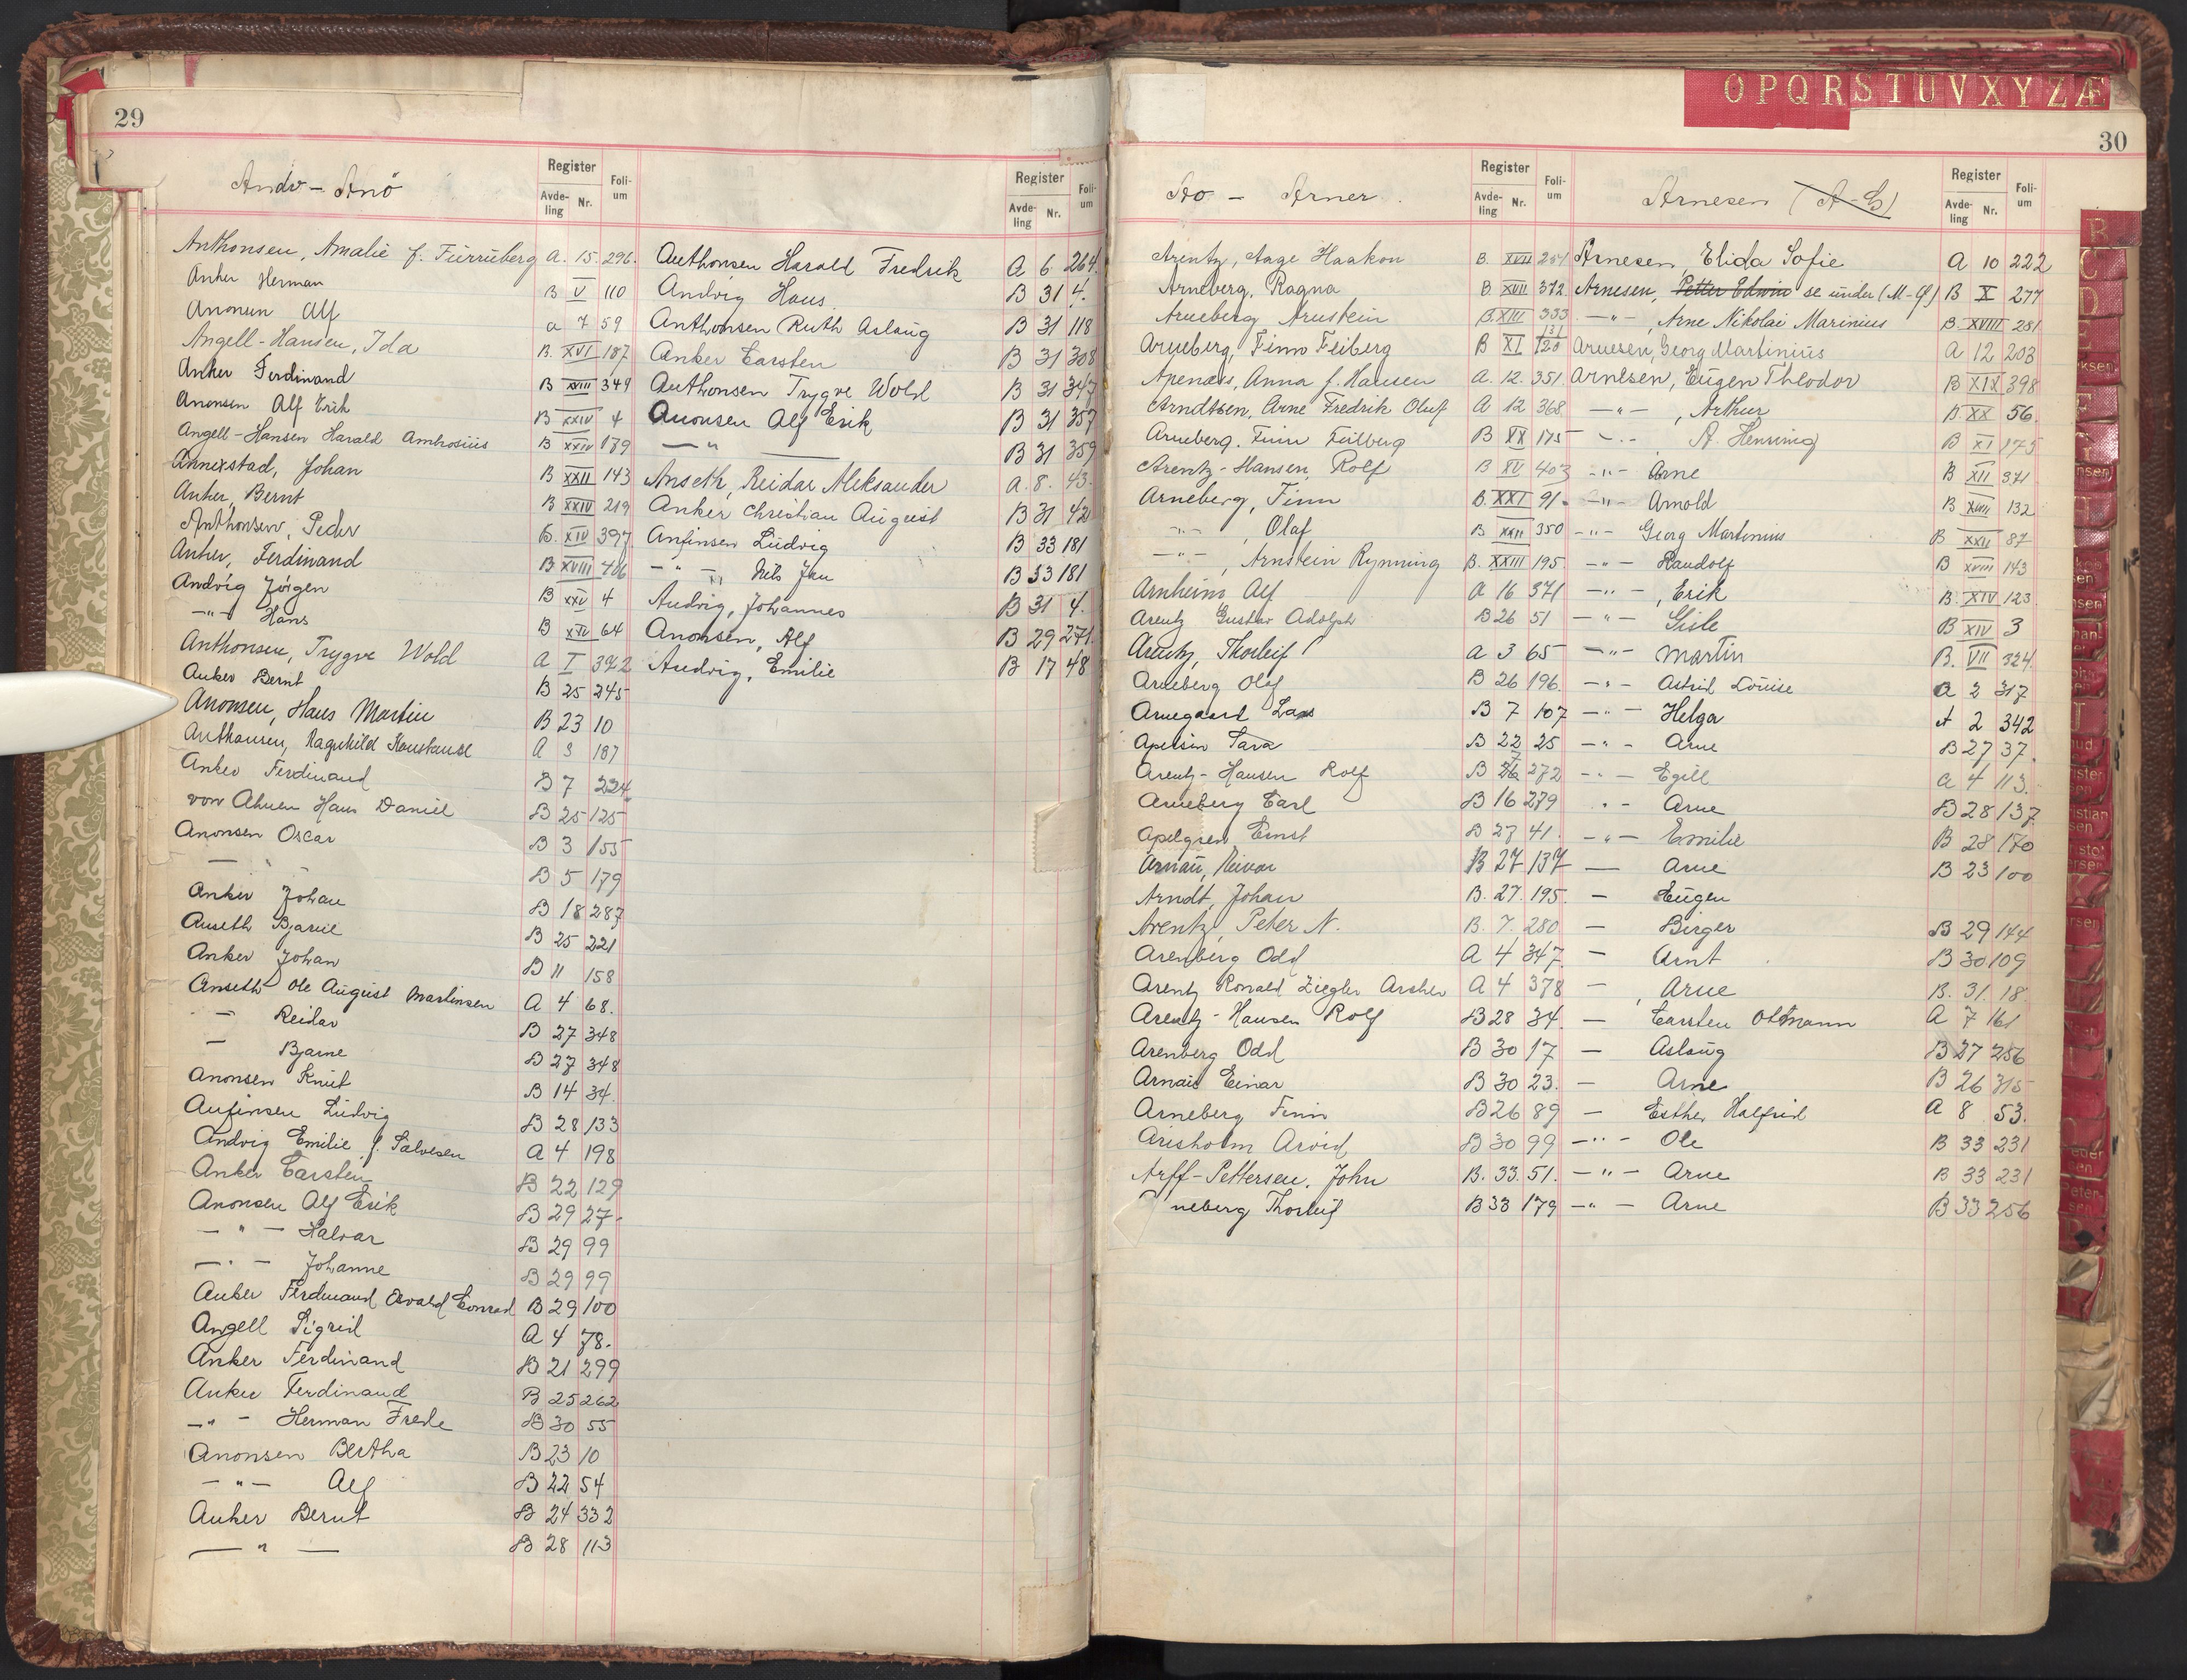 29
Andv - Anö
Register
Avde-ling Nr.
Foli-um
Anthonsen, Amalie f. Furruberg A. 15. 296.
Anker Herman B V 110
Anonsen Alf a 7 59
Angell-Hansen, Ida B. XVI 187
Anker Ferdinand B XVIII 349
Anonsen Alf Erik B XXIV 4
Angell-Hansen Harald Ambrosius B XXIV 179
Annexstad, Johan B XXII 143
Anker, Bernt B XXIV 219
Anthonsen, Peder B. XIV 397
Anker, Ferdinand B XVIII 406
Andvig Jørgen B XXV 4
-"- Hans B XV 64
Anthonsen, Trygve Wold A I 392
Anker Bernt B 25 245
Anonsen, Hans Martin B 23 10
Anthonsen, Ragnhild Konstanse A 3 187
Anker Ferdinand B 7 224
von Ahnen Hans Daniel B 25 125
Anonsen Oscar B 3 155
— " B 5 179
Anker Johan B 18 287
Anseth Bjarne B 25 221
Anker Johan B 11 158
Anseth Ole August Martinsen A 4 68.
— Reidar B 27 348
— Bjarne B 27 348
Anonsen Knut B 14 34.
Anfinsen Ludvig B 28 133
Andvig Emilie f. Salvesen A 4 198
Anker Carsten B 22 129
Anonsen Alf Erik B 29 27.
— " — Halvar B 29 99
— " — Johanne B 29 99
Anker Ferdinand Osvald Conrad B 29 100
Angell Sigrid A 4 78.
Anker Ferdinand B 21 299
Anker Ferdinand B 25 262
—"— Herman Frede B 30 55
Anonsen Bertha B 23 10
—"— Alf B 22 54
Anker Bernt B 24 332
— " — B 28 113
Register
Avde-ling Nr.
Foli-um
Anthonsen Harald Fredrik A 6 264.
Andvig Hans. B 31 4.
Anthonsen Ruth Aslaug B 31 118
Anker Carsten B 31 308
Anthonsen Trygve Wold B 31 347
Anonsen Alf Erik B 31 357
— " — B 31 359
Anseth, Reidar Aleksander A. 8. 43.
Anker Christian August B 31 42
Anfinsen Ludvig B 33 181
— " — Nils Jan B 33 181
Andvig, Johannes B 31 4.
Anonsen, Alf B 29 271.
Andvig, Emilie B 17 48
O P Q R S T U V X Y Z Æ
30
Ao - Arner.
Register
Avde-ling Nr.
Foli-um
Arentz, Aage Haakon B. XVII 254
Arneberg, Ragna B. XVII 372
Arneberg Arnstein B XIII 333
Arneberg, Finn Feiberg B XI 131 120
Apenæs, Anna f. Hansen A. 12. 351
Arndtsen, Arne Fredrik Oluf A 12 368
Arneberg. Finn Feilberg B XX 175
Arentz-Hansen, Rolf B XV 403
Arneberg, Finn B. XXI 91.
-"- , Olaf B XXII 350
-"- , Arnstein Rynning B. XXIII 195
Arnheim Alf A 16 371
Arentz Gustav Adolph B 26 51
Arentz, Thorleif A 3 65
Arneberg Olaf B 26 196.
Arnegaard Lars B 7 107
Apelsin Sara B 22 25
Arentz-Hansen Rolf B 26 7 272
Arneberg Carl B 16 279
Apelgren Ernst B 27 41.
Arnau, Reivar B 27 137
Arndt, Johan B. 27. 195.
Arentz, Peter N. B. 7. 280
Arenberg Odd A 4 347.
Arentz Ronald Ziegler Archer A 4 378
Arentz-Hansen Rolf B 28 34.
Arenberg Odd B 30 17
Arnais Einar B 30 23.
Arneberg Finn B 26 89
Arisholm Arvid B 30 99
Arff-Pettersen, John B. 33. 51.
neberg Thorleif B 33 179
Arnesen (A-G)
Register
Avde-ling Nr.
Foli-um
Arnesen Elida Sofie A 10 222
Arnesen, Petter Edwin se under (M-Ø) B X 277
-"- , Arne Nikolai Marinius B. XVIII 281
Arnesen, Georg Martinius A 12 203
Arnesen, Eugen Theodor B XIX 398
-"- , Arthur B. XX 56.
-"- A. Henning B XI 175
-"- Arne B XII 371
-"- Arnold B XVIII 132
-"- Georg Martinius B XXII 87
-"- Randolf B XVIII 143
-"- , Erik B. XIV 123
-"- Gisle B XIV 3
-"- Martin B. VII 324.
-"- Astrid Louise A 2 317
-"- Helga A 2 342
-"- Arne B 27 37.
-"- Egill A 4 113.
"- Arne B 28 137.
-"- Emilie B 28 170
— Arne B 23 100
— Eugen
— Birger B 29 144
— Arnt B 30 109
— , Arne B. 31. 18.
— Carsten Oltmann A 7 161
— Aslaug B 27 256
— Arne B 26 315
— Esther Halfrid A 8 53.
-"- Ole B 33 231
-"- Arne B 33 231
-"- Arne B 33 256